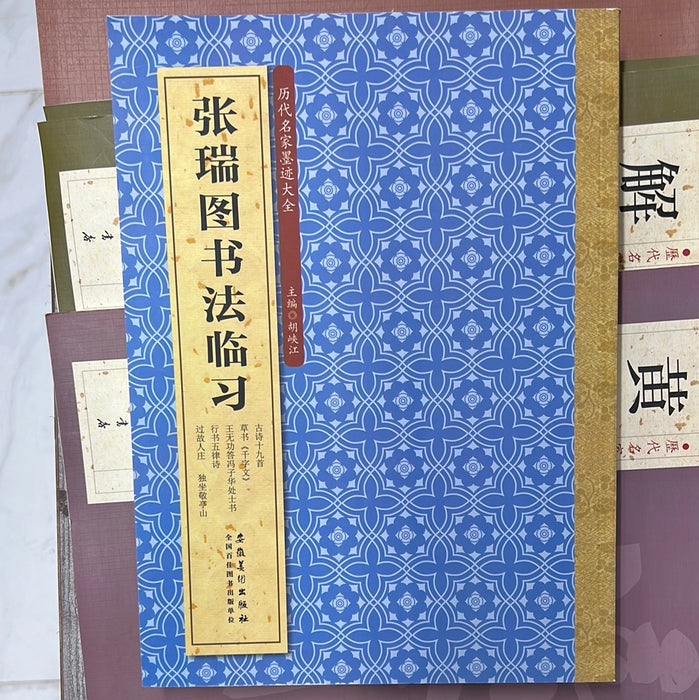 张瑞图书法临习
历代名家墨迹大全
主编◎胡峡江
古诗十九首
草书《千字文》
王无功答冯子华处士书
行书五律诗
过故人庄 独坐敬亭山
安徽美术出版社
全国百佳图书出版单位
解
歷代名
黄
歷代名家